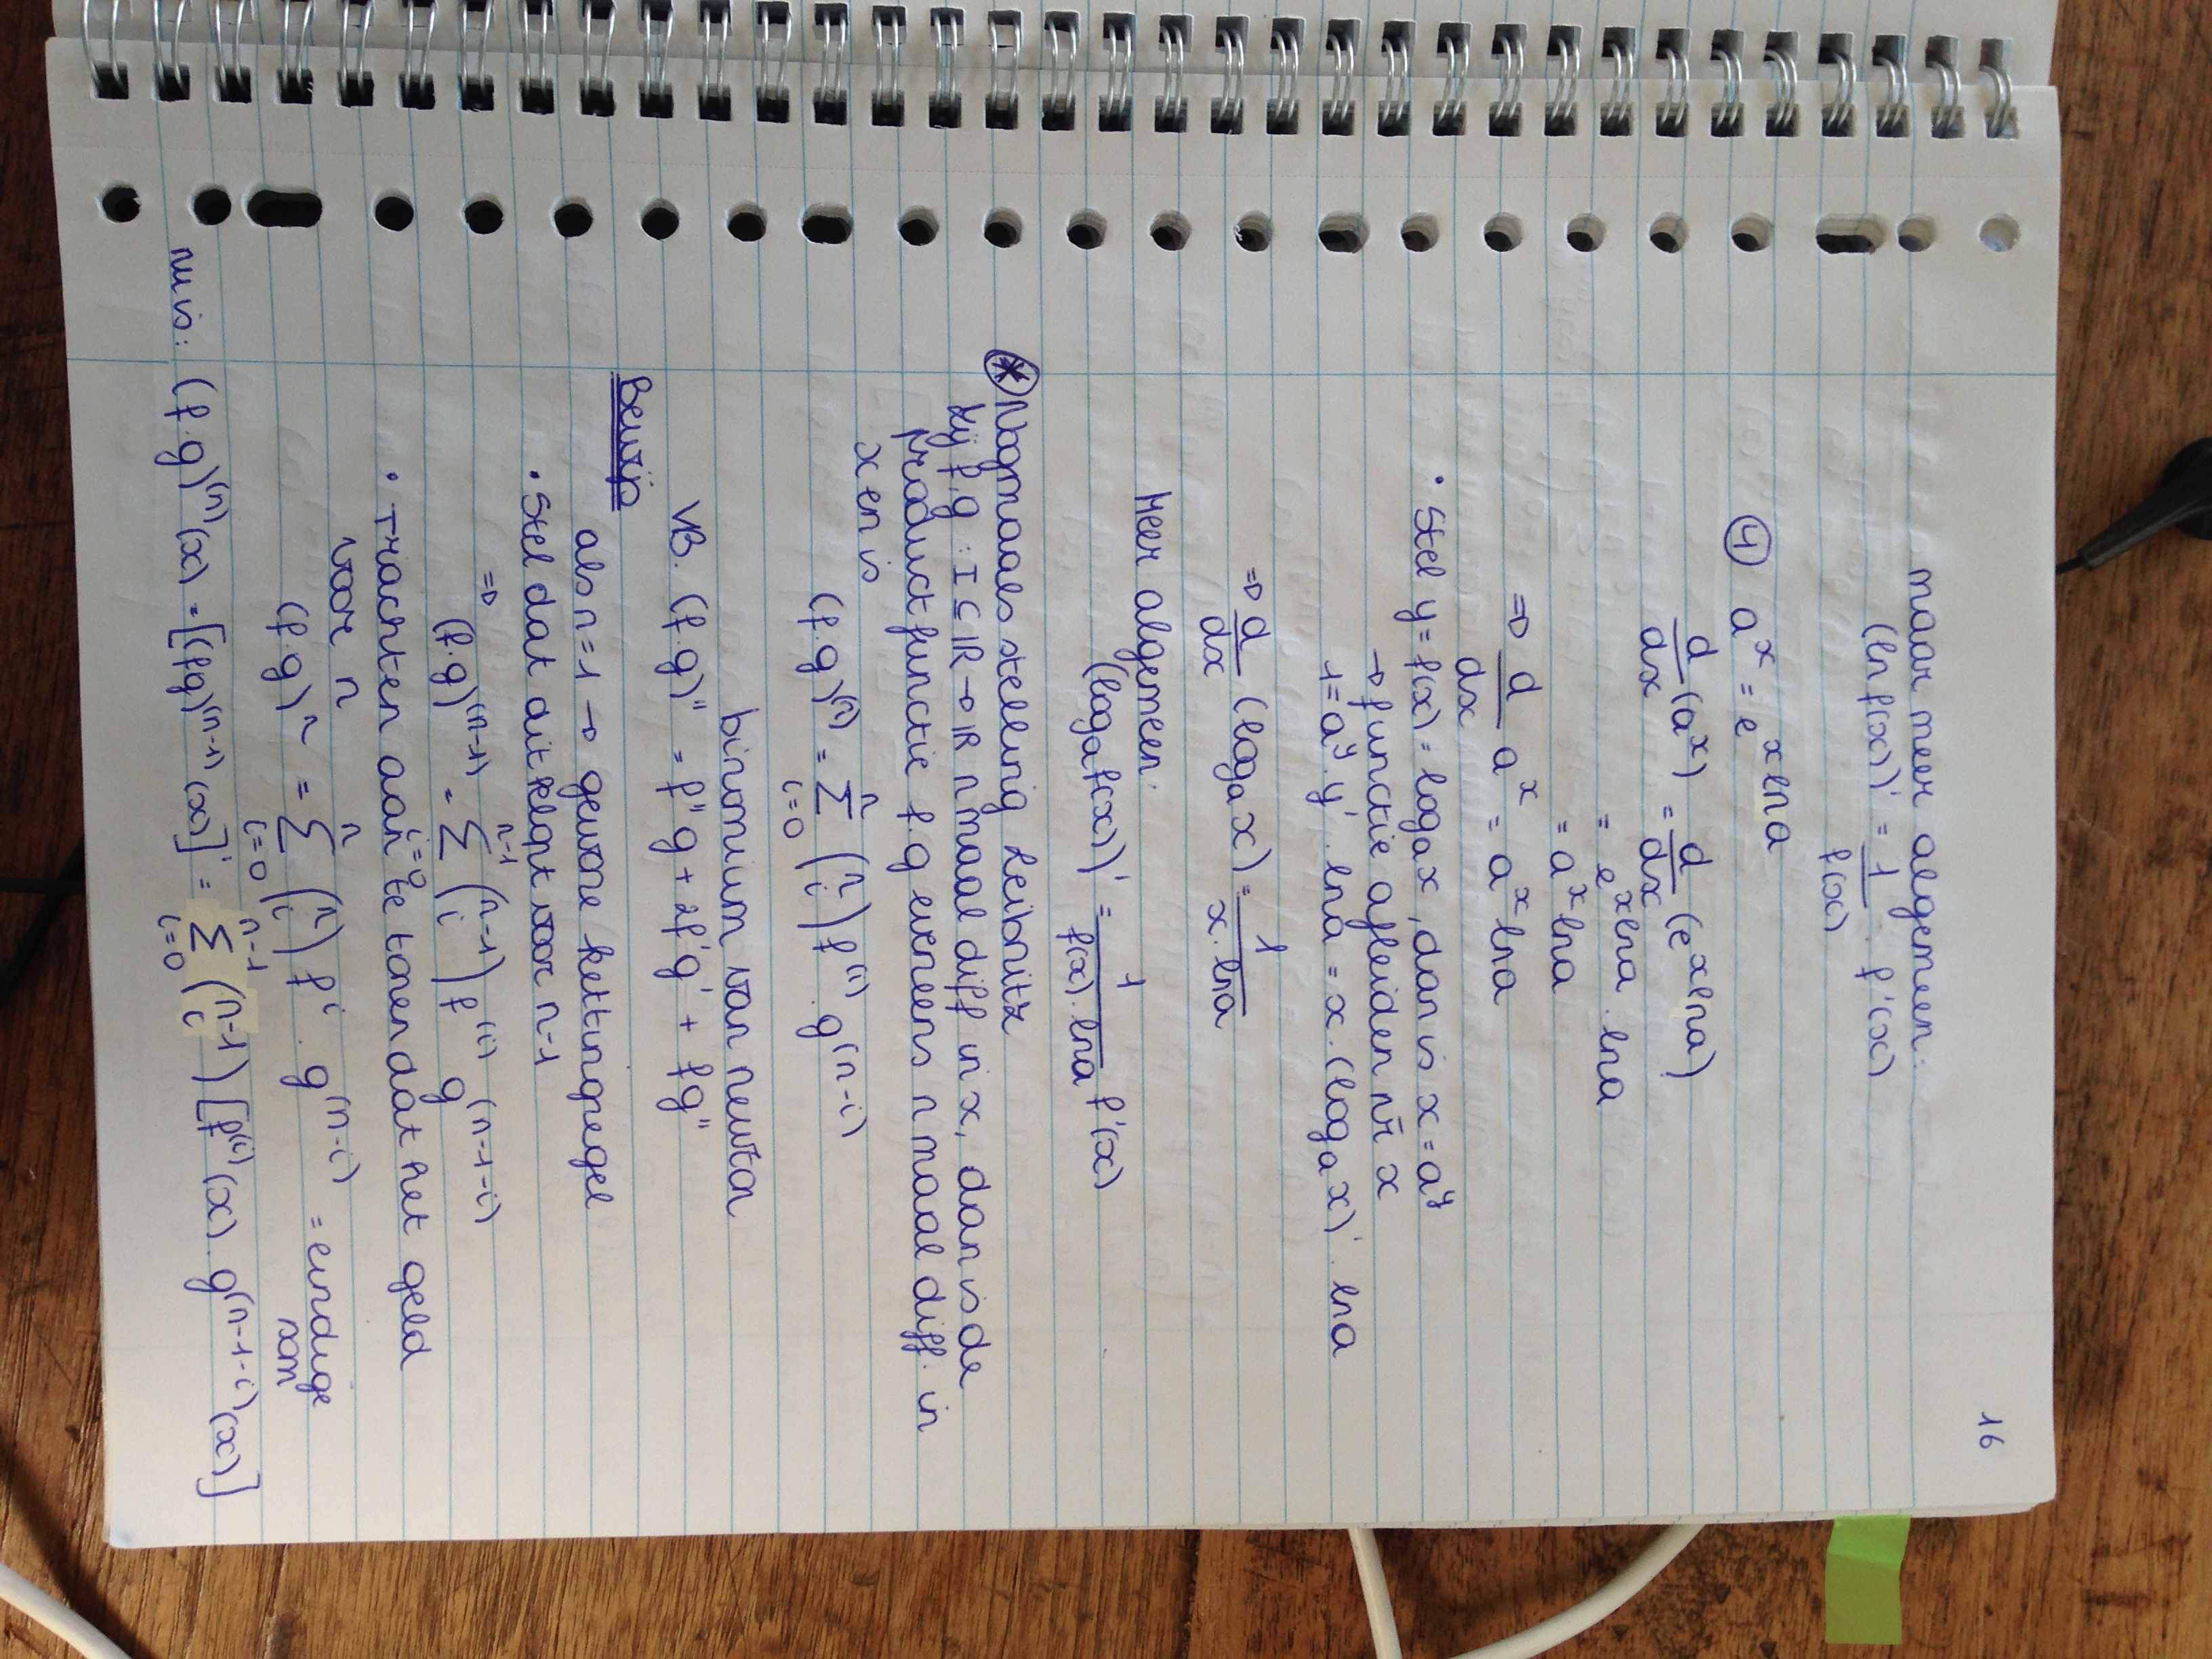 16
maar meer algemeen:
(ln f(x))' = 1/f(x) · f'(x)
④ a^x = e^(x ln a)
d/dx (a^x) = d/dx (e^(x ln a))
= e^(x ln a) · ln a
= a^x ln a
⇒ d/dx a^x = a^x ln a
• Stel y = f(x) = log_a x, dan is x = a^y
→ functie afleiden nr x
1 = a^y · y' · ln a = x · (log_a x)' · ln a
⇒ d/dx (log_a x) = 1/(x · ln a)
Meer algemeen:
(log_a f(x))' = 1/(f(x) · ln a) f'(x)
⊛ Nogmaals stelling Leibnitz
Zij f,g : I ⊆ ℝ → ℝ n maal diff in x, dan is de
productfunctie f.g eveneens n maal diff. in
x en is
(f·g)^(n) = Σ_{i=0}^{n} (n over i) f^(i) · g^(n-i)
binomium van newton
VB. (f·g)'' = f''g + 2f'g' + fg''
Bewijs
als n=1 → gewone kettingregel
• Stel dat dit klopt voor n-1
⇒ (f·g)^(n-1) = Σ_{i=0}^{n-1} (n-1 over i) f^(i) g^(n-1-i)
• Trachten aan te tonen dat het geld
voor n
(f·g)^n = Σ_{i=0}^{n} (n over i) f^i · g^(n-i) = eindige
som
nu is: (f·g)^(n)(x) = [(fg)^(n-1)(x)]' = Σ_{i=0}^{n-1} (n-1 over i) [f^(i)(x) · g^(n-1-i)(x)]